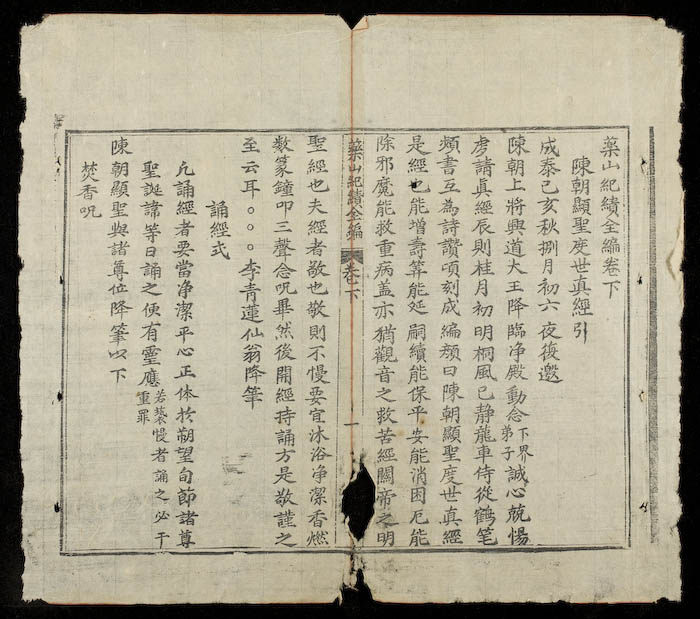 藥山紀績全編卷下
陳朝顯聖度世真經引
成泰己亥秋捌月初六夜復邀
陳朝上將興道大王降臨净殿動念下界弟子誠心兢惕
虔請真經辰則桂月初明桐風已静龍車侍從鶴笔
頻書互為詩讚頃刻成編顏曰陳朝顯聖度世真經
是經也能增壽筭能延嗣續能保平安能消困厄能
除邪魔能救重病盖亦猶觀音之救苦經關帝之明
藥山紀績全編
卷下
一
聖經也夫經者敬也敬則不慢要宜沐浴净潔香燃
数篆鐘叩三聲念呪畢然後開經持誦方是敬謹之
至云耳。。。李青蓮仙翁降筆
誦經式
凢誦經者要當净潔平心正体於朔望旬節諸尊
聖誕諱等日誦之便有靈應若褻慢者誦之必干重罪
陳朝顯聖與諸尊位降筆如下
焚香呪